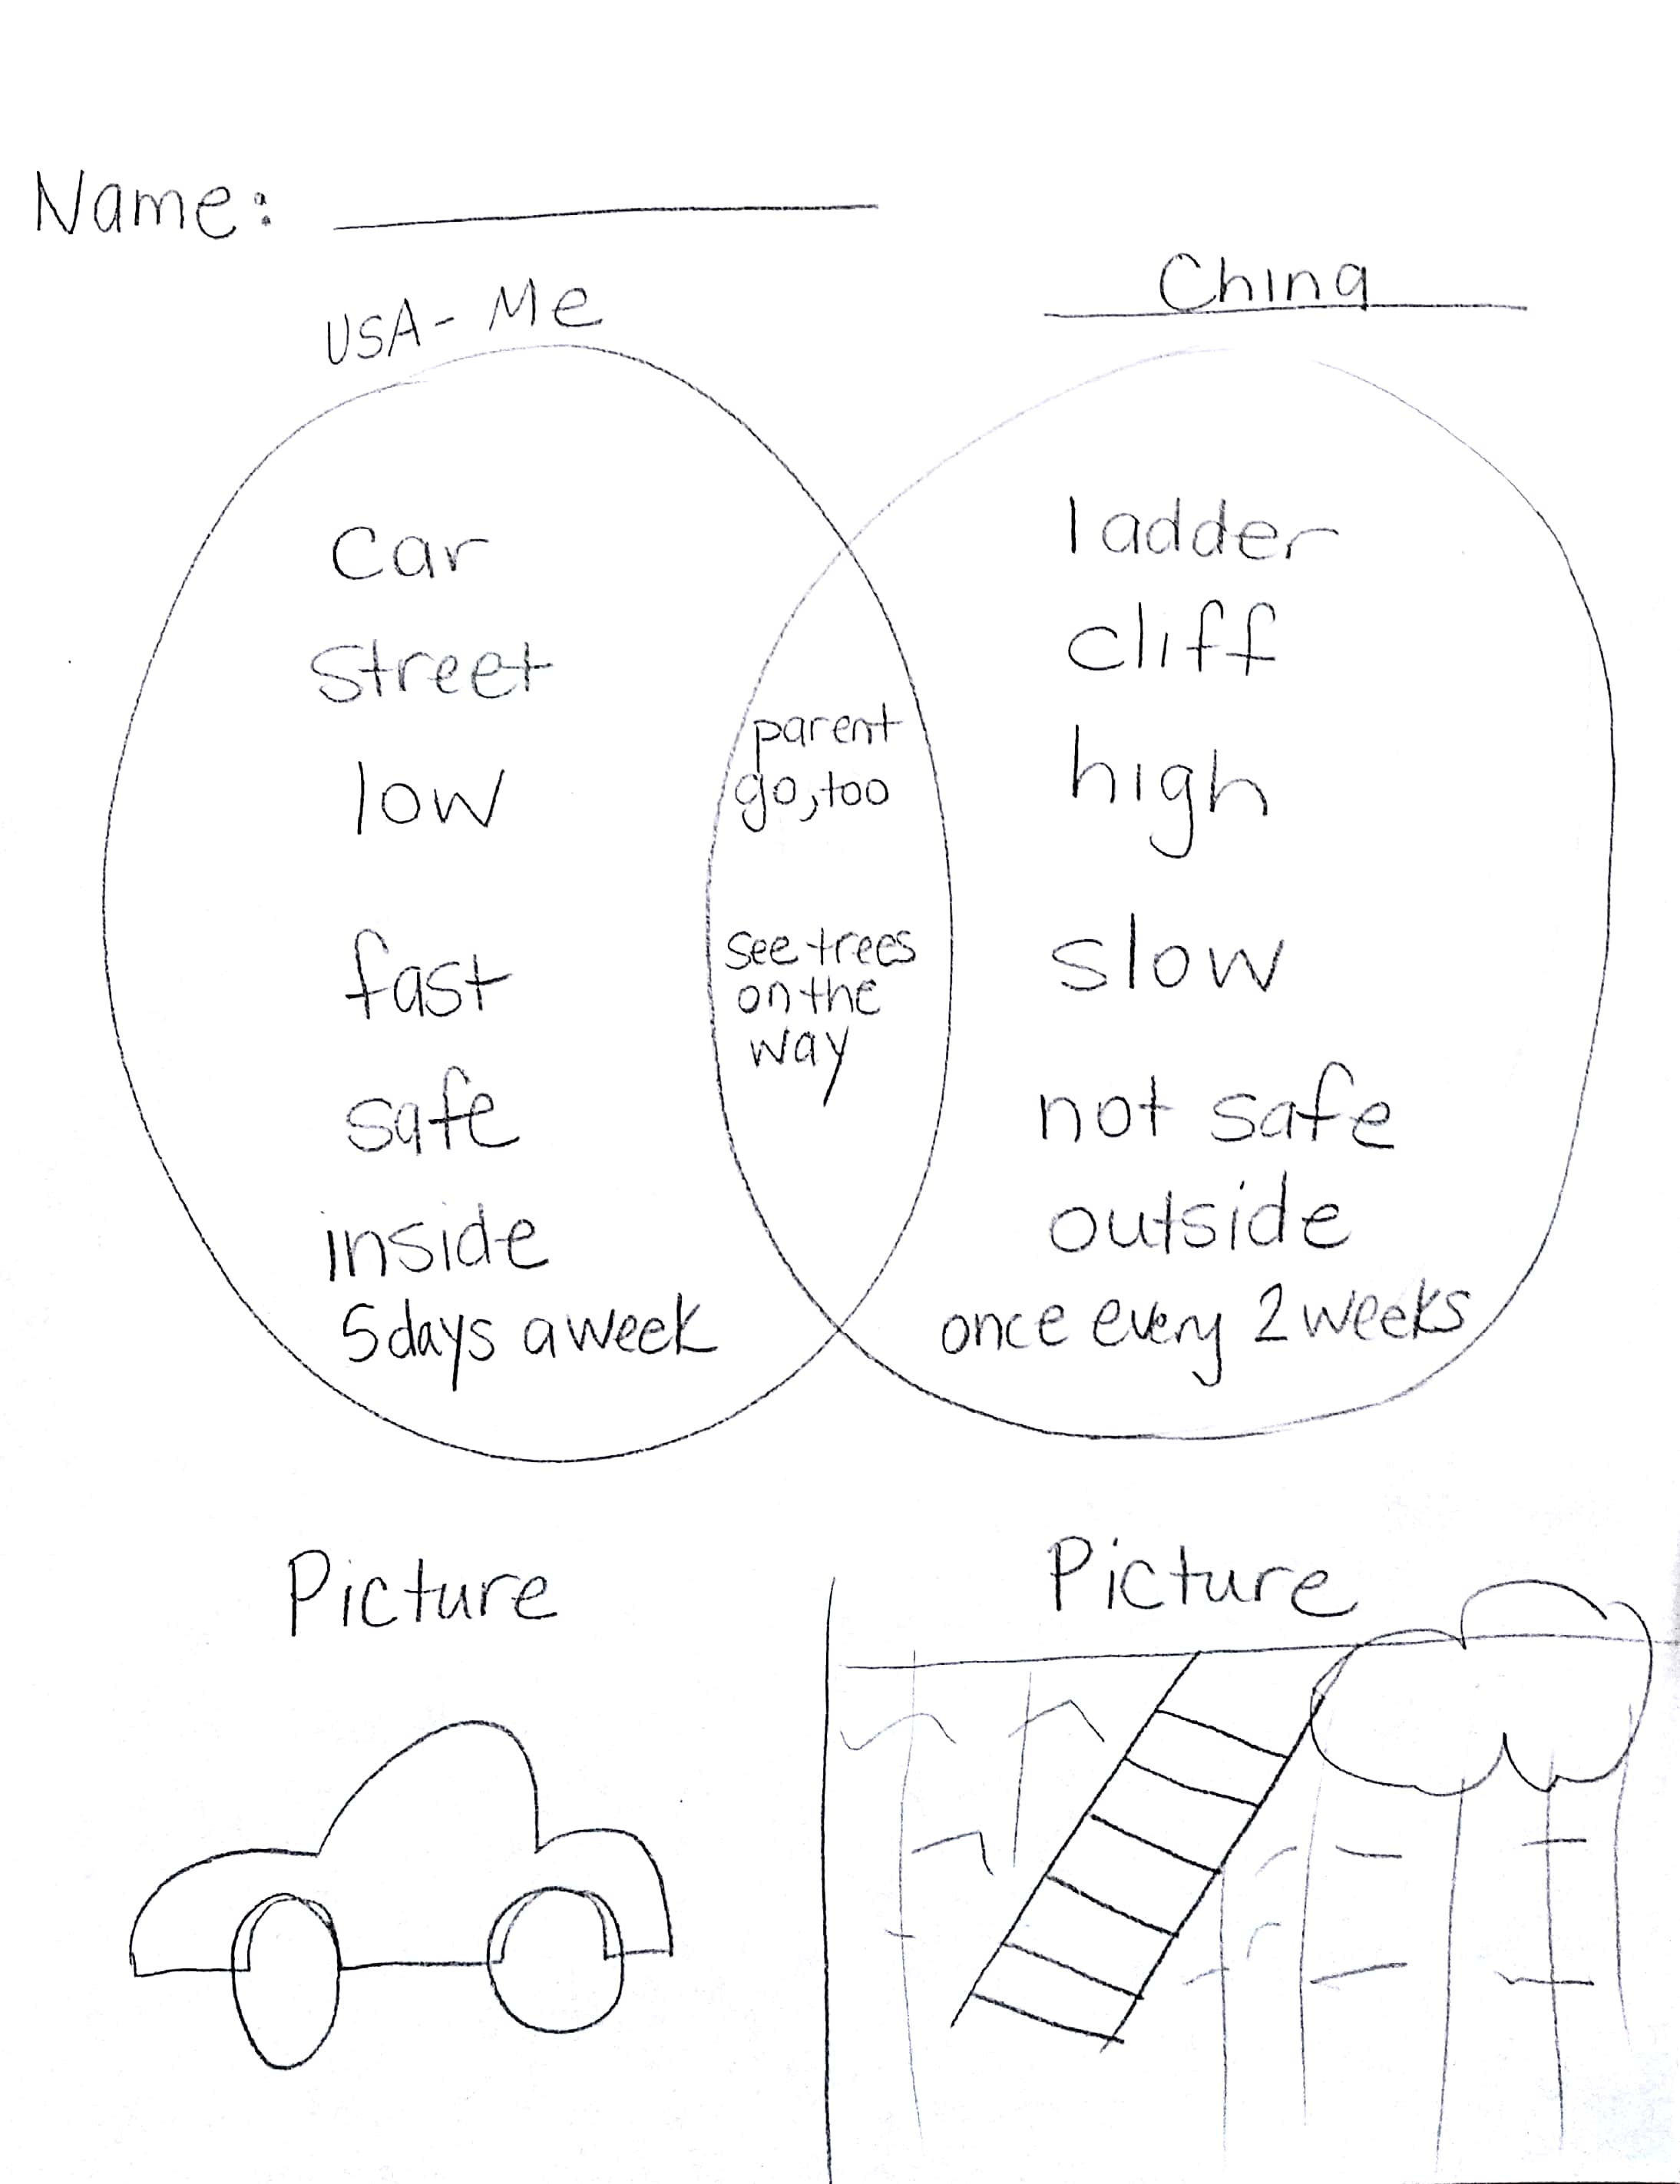 Name:
USA - Me
China
car
street
low
fast
safe
inside
5 days a week
parent
go, too
see trees
on the
way
ladder
cliff
high
slow
not safe
outside
once every 2 weeks
Picture
Picture